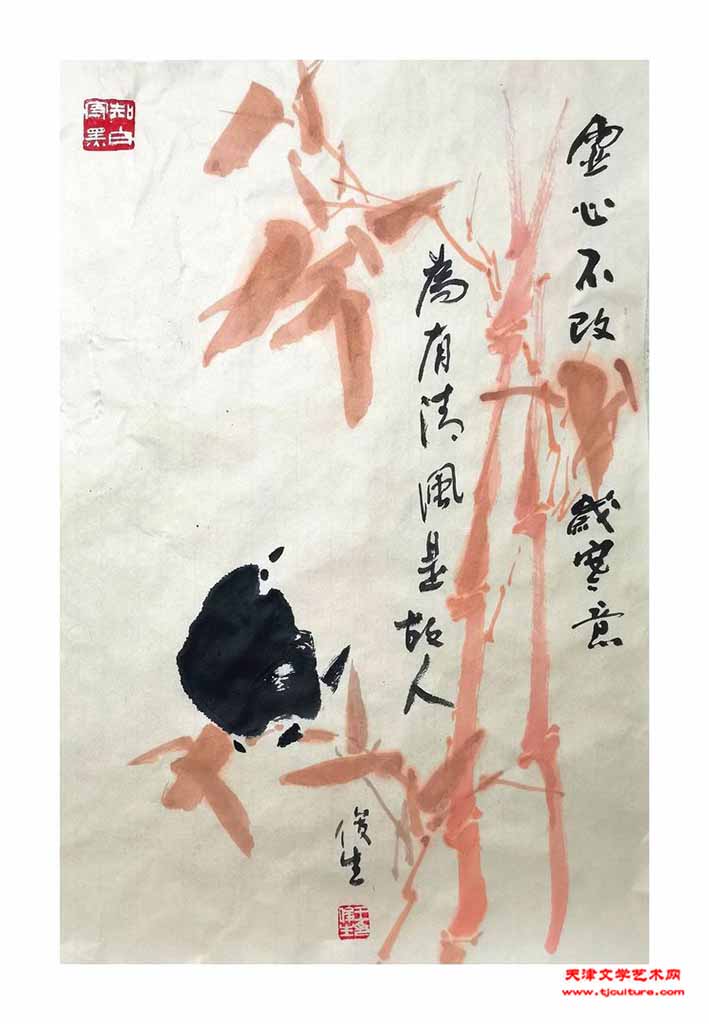 虚心不改岁寒意
為有清風是故人
俊生
知白
守黑
天津文学艺术网
www.tjculture.com